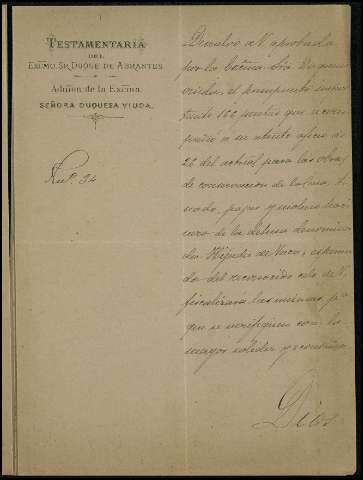 TESTAMENTARIA
DEL
EXCMO. SR. DUQUE DE ABRANTES
Admon de la Excma.
SEÑORA DUQUESA VIUDA.
Num. 34
Devuelvo á V. aprobado
por la Excma. Sra. Duquesa
viuda, el presupuesto impor
tante 166 pesetas que acom
pañó á su atento oficio de
26 del actual para las obras
de conservacion de
de la dehesa denomina
da
del reconocido celo de V.
fiscalizará las mismas, pa
que se verifiquen con la
mayor solidez y economia.
Dios